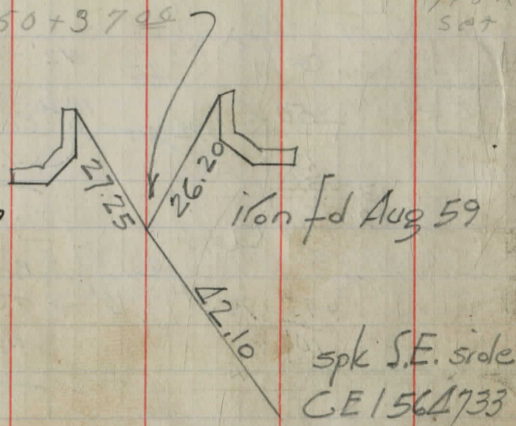 50+37 00
set
27.25
26.20
iron fd Aug 59
42.10
spk S.E. side
CE1564733